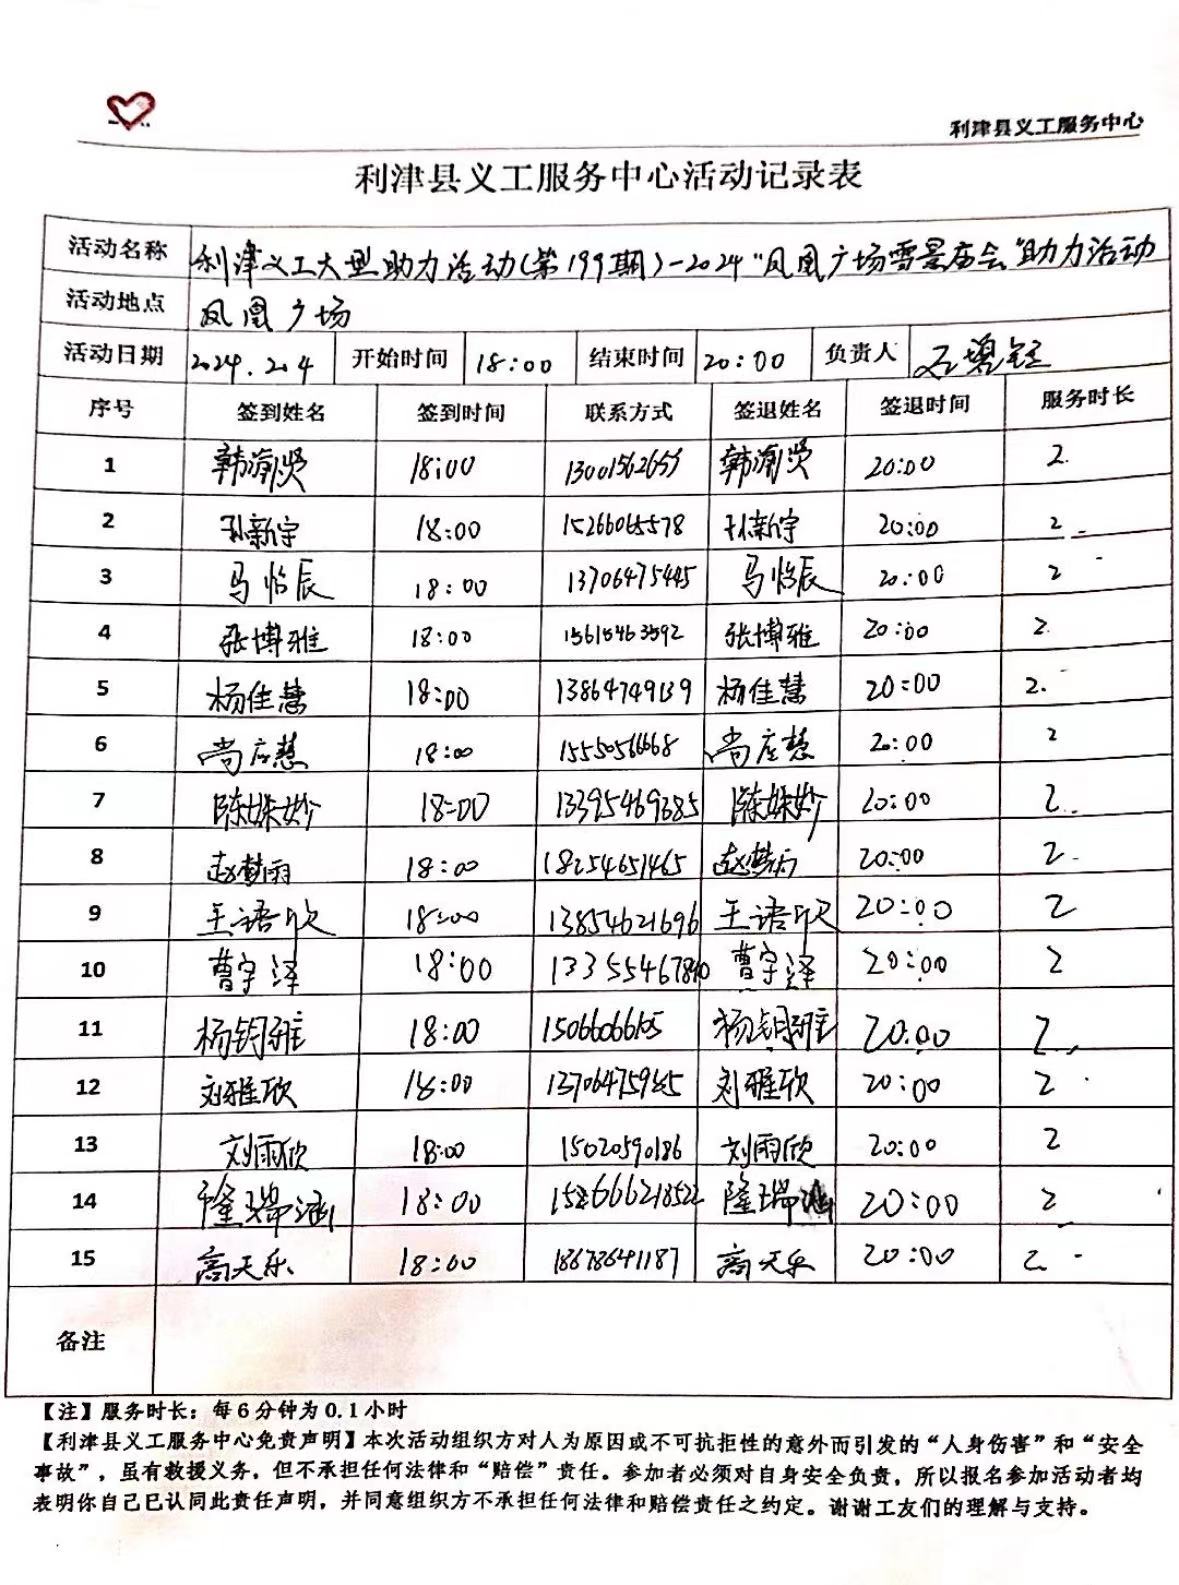 利津县义工服务中心
利津县义工服务中心活动记录表
活动名称 利津义工大型助力活动(第199期)-2024"凤凰广场雪景庙会"助力活动
活动地点 凤凰广场
活动日期 2024.2.4 开始时间 18:00 结束时间 20:00 负责人
序号 签到姓名 签到时间 联系方式 签退姓名 签退时间 服务时长
1 18:00 20:00 2.
2 孙新宇 18:00 15266065578 孙新宇 20:00 2
3 马怡辰 18:00 13706475445 马怡辰 20:00 2
4 张博雅 18:00 15615463592 张博雅 20:00 2.
5 杨佳慧 18:00 13864749139 杨佳慧 20:00 2.
6 18:00 20:00 2
7 陈姝妙 18:00 13395469385 陈姝妙 20:00 2
8 赵梦雨 18:00 18254651465 赵梦雨 20:00 2
9 王语欣 18:00 13854621696 王语欣 20:00 2
10 曹宇泽 18:00 曹宇泽 20:00 2
11 杨钧雅 18:00 杨钧雅 20:00 2
12 刘雅欣 18:00 刘雅欣 20:00 2
13 刘雨欣 18:00 15020590186 刘雨欣 20:00 2
14 隆瑞涵 18:00 隆瑞涵 20:00 2
15 高天乐 18:00 18678641187 高天乐 20:00 2
备注
【注】服务时长：每6分钟为0.1小时
【利津县义工服务中心免责声明】本次活动组织方对人为原因或不可抗拒性的意外而引发的“人身伤害”和“安全
事故”，虽有救援义务，但不承担任何法律和“赔偿”责任。参加者必须对自身安全负责，所以报名参加活动者均
表明你自己已认同此责任声明，并同意组织方不承担任何法律和赔偿责任之约定。谢谢工友们的理解与支持。